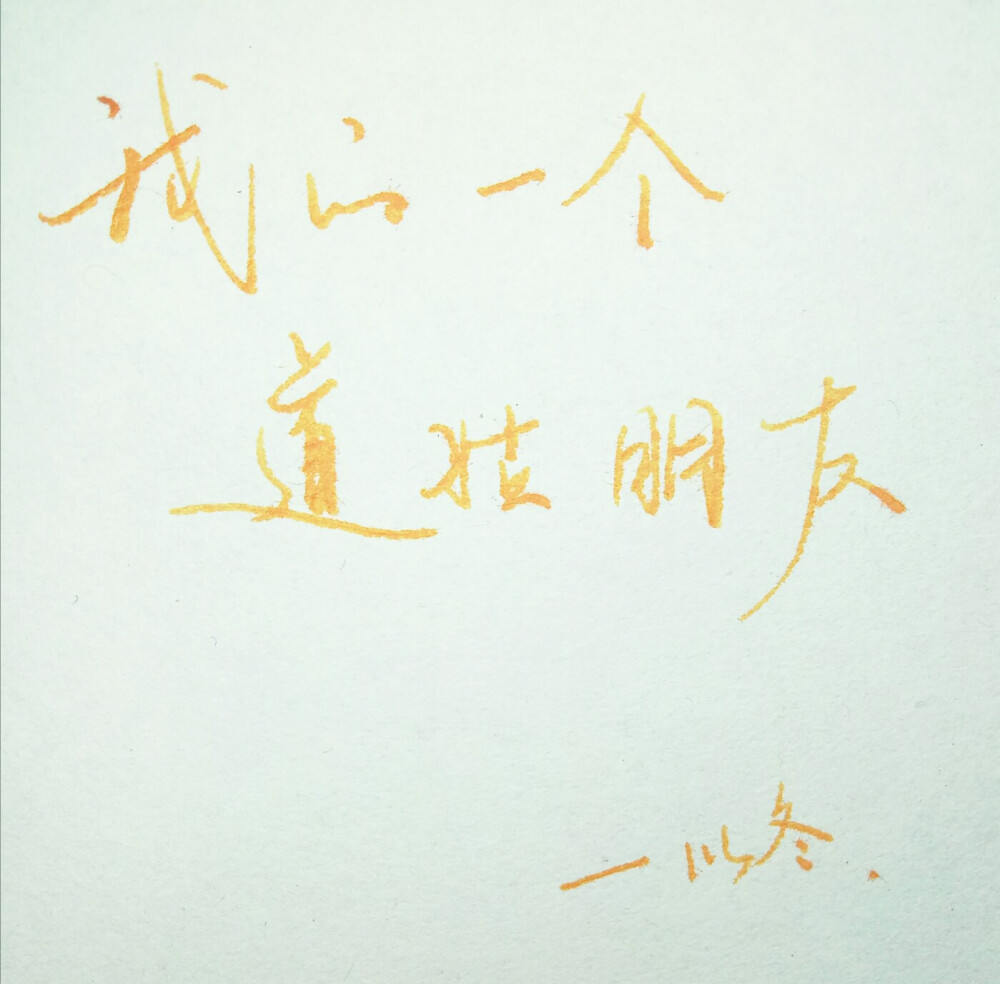 我的一个
道姑朋友
一以冬.